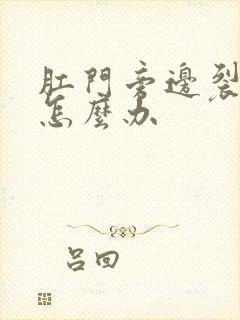 肛門旁邊裂
怎麼办
吕回